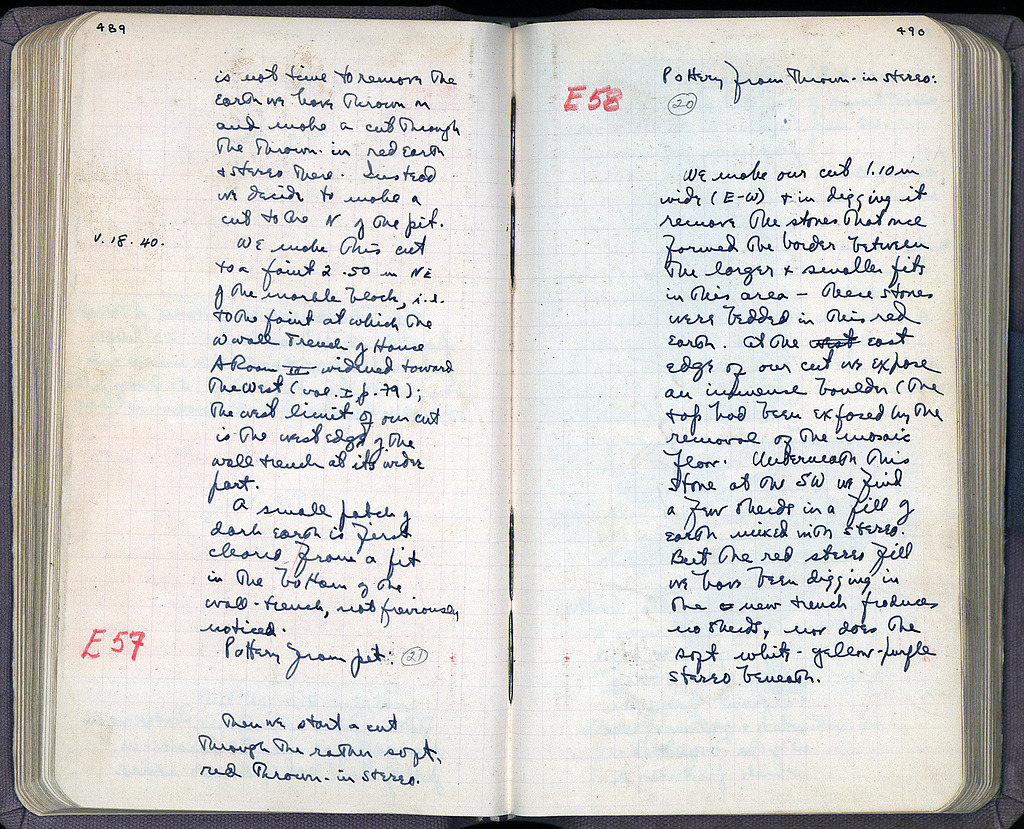 489
is not time to remove the
earth we have thrown in
and make a cut through
the thrown-in red earth
+ stereo there. Instead
we decide to make a
cut to the N of the pit.
V. 18. 40.
We make this cut
to a point 2.50 m NE
of the marble block, i.e.
to the point at which the
W wall trench of House
A Room III widened toward
the west (vol. I p. 79);
the west limit of our cut
is the west edge of the
wall trench at its wider
part.
A small patch of
dark earth is first
cleared from a pit
in the bottom of the
wall-trench, not previously
noticed.
E 57
Pottery from pit: (21)
Then we start a cut
through the rather soft,
red thrown-in stereo.
490
Pottery from thrown-in stereo:
E 58
(20)
We make our cut 1.10 m
wide (E-W) + in digging it
remove the stones that once
formed the border between
the larger + smaller pits
in this area - these stones
were bedded in this red
earth. At the west east
edge of our cut we expose
an immense boulder (the
top had been exposed by the
removal of the mosaic
floor. Underneath this
stone at the SW we find
a few sherds in a fill of
earth mixed with stereo.
But the red stereo fill
we have been digging in
the new trench produces
no sherds, nor does the
soft white-yellow-purple
stereo beneath.